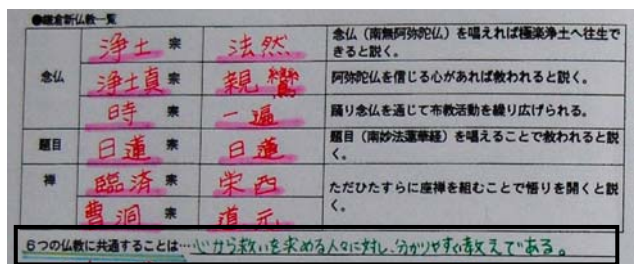 ●鎌倉新仏教一覧
念仏
浄土宗 法然 念仏（南無阿弥陀仏）を唱えれば極楽浄土へ往生で
きると説く。
浄土真宗 親鸞 阿弥陀仏を信じる心があれば救われると説く。
時宗 一遍 踊り念仏を通じて布教活動を繰り広げられる。
題目 日蓮宗 日蓮 題目（南妙法蓮華経）を唱えることで救われると説
く。
禅
臨済宗 栄西 ただひたすらに座禅を組むことで悟りを開くと説
く。
曹洞宗 道元
6つの仏教に共通することは…心から救いを求める人々に対し、分かりやすい教えである。